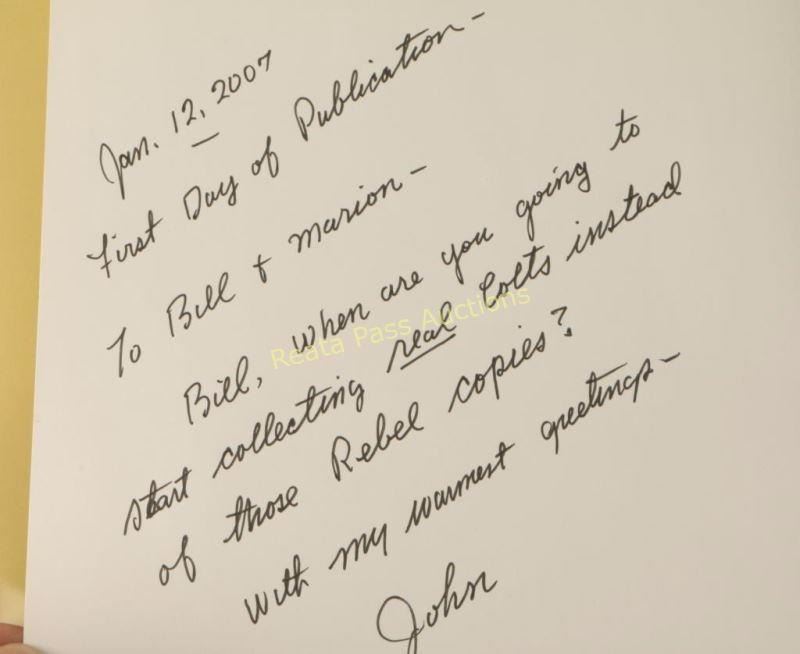 Jan. 12, 2007
First Day of Publication-
To Bill & Marion-
Bill, when are you going to
start collecting real Colts instead
of those Rebel copies?
with my warmest greetings-
John
Reata Pass Auctions